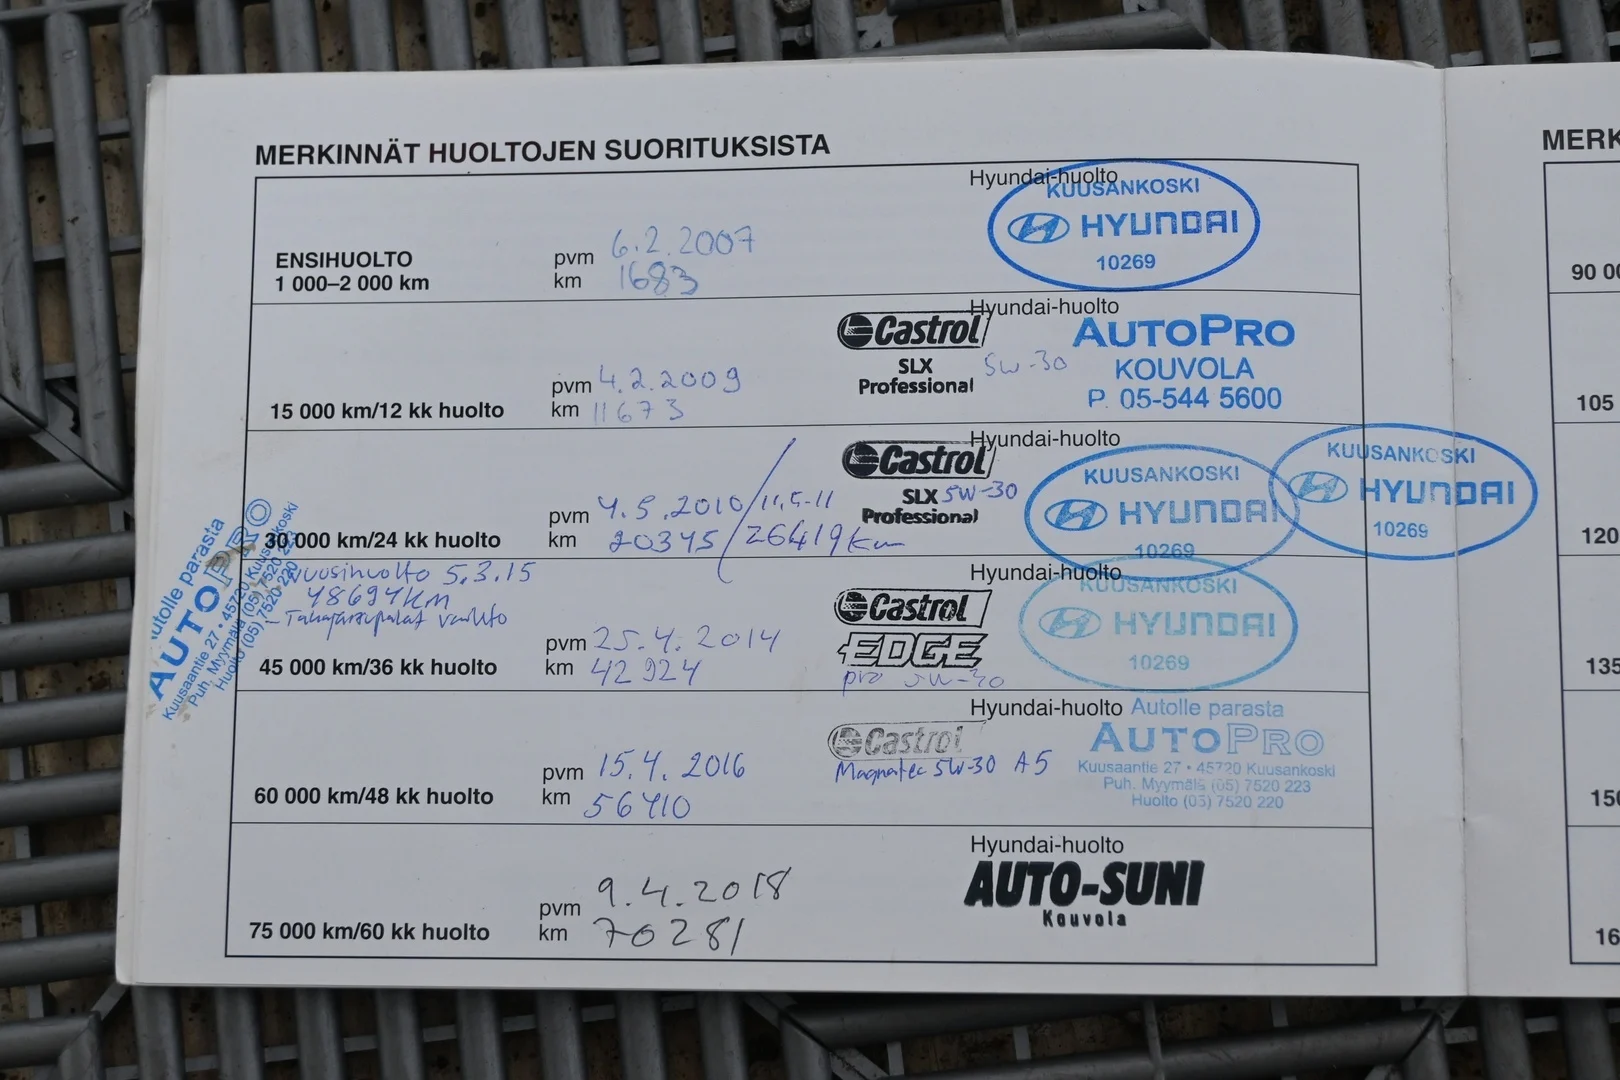 MERKINNÄT HUOLTOJEN SUORITUKSISTA
Hyundai-huolto
KUUSANKOSKI
HYUNDAI
10269
ENSIHUOLTO
1 000–2 000 km
pvm 6.2.2007
km 1683
Hyundai-huolto
Castrol
SLX
Professional
5W-30
AUTOPRO
KOUVOLA
P. 05-544 5600
15 000 km/12 kk huolto
pvm 4.2.2009
km 11673
Hyundai-huolto
Castrol
SLX 5W-30
Professional
KUUSANKOSKI
HYUNDAI
10269
KUUSANKOSKI
HYUNDAI
10269
30 000 km/24 kk huolto
pvm 4.5.2010 / 11.5-11
km 20345 / 26419 km
Autolle parasta
AUTOPRO
Kuusaantie 27 • 45720 Kuusankoski
Puh. Myymälä (05) 7520 223
Huolto (05) 7520 220
Vuosihuolto 5.3.15
48694 km
- Takajarrupalat vaihto
Hyundai-huolto
Castrol
EDGE
pro 5W-30
KUUSANKOSKI
HYUNDAI
10269
45 000 km/36 kk huolto
pvm 25.4.2014
km 42924
Hyundai-huolto
Castrol
Magnatec 5W-30 A5
Autolle parasta
AUTOPRO
Kuusaantie 27 • 45720 Kuusankoski
Puh. Myymälä (05) 7520 223
Huolto (05) 7520 220
60 000 km/48 kk huolto
pvm 15.4.2016
km 56410
Hyundai-huolto
AUTO-SUNI
Kouvola
75 000 km/60 kk huolto
pvm 9.4.2018
km 70281
MERK
90 00
105
120
135
150
16